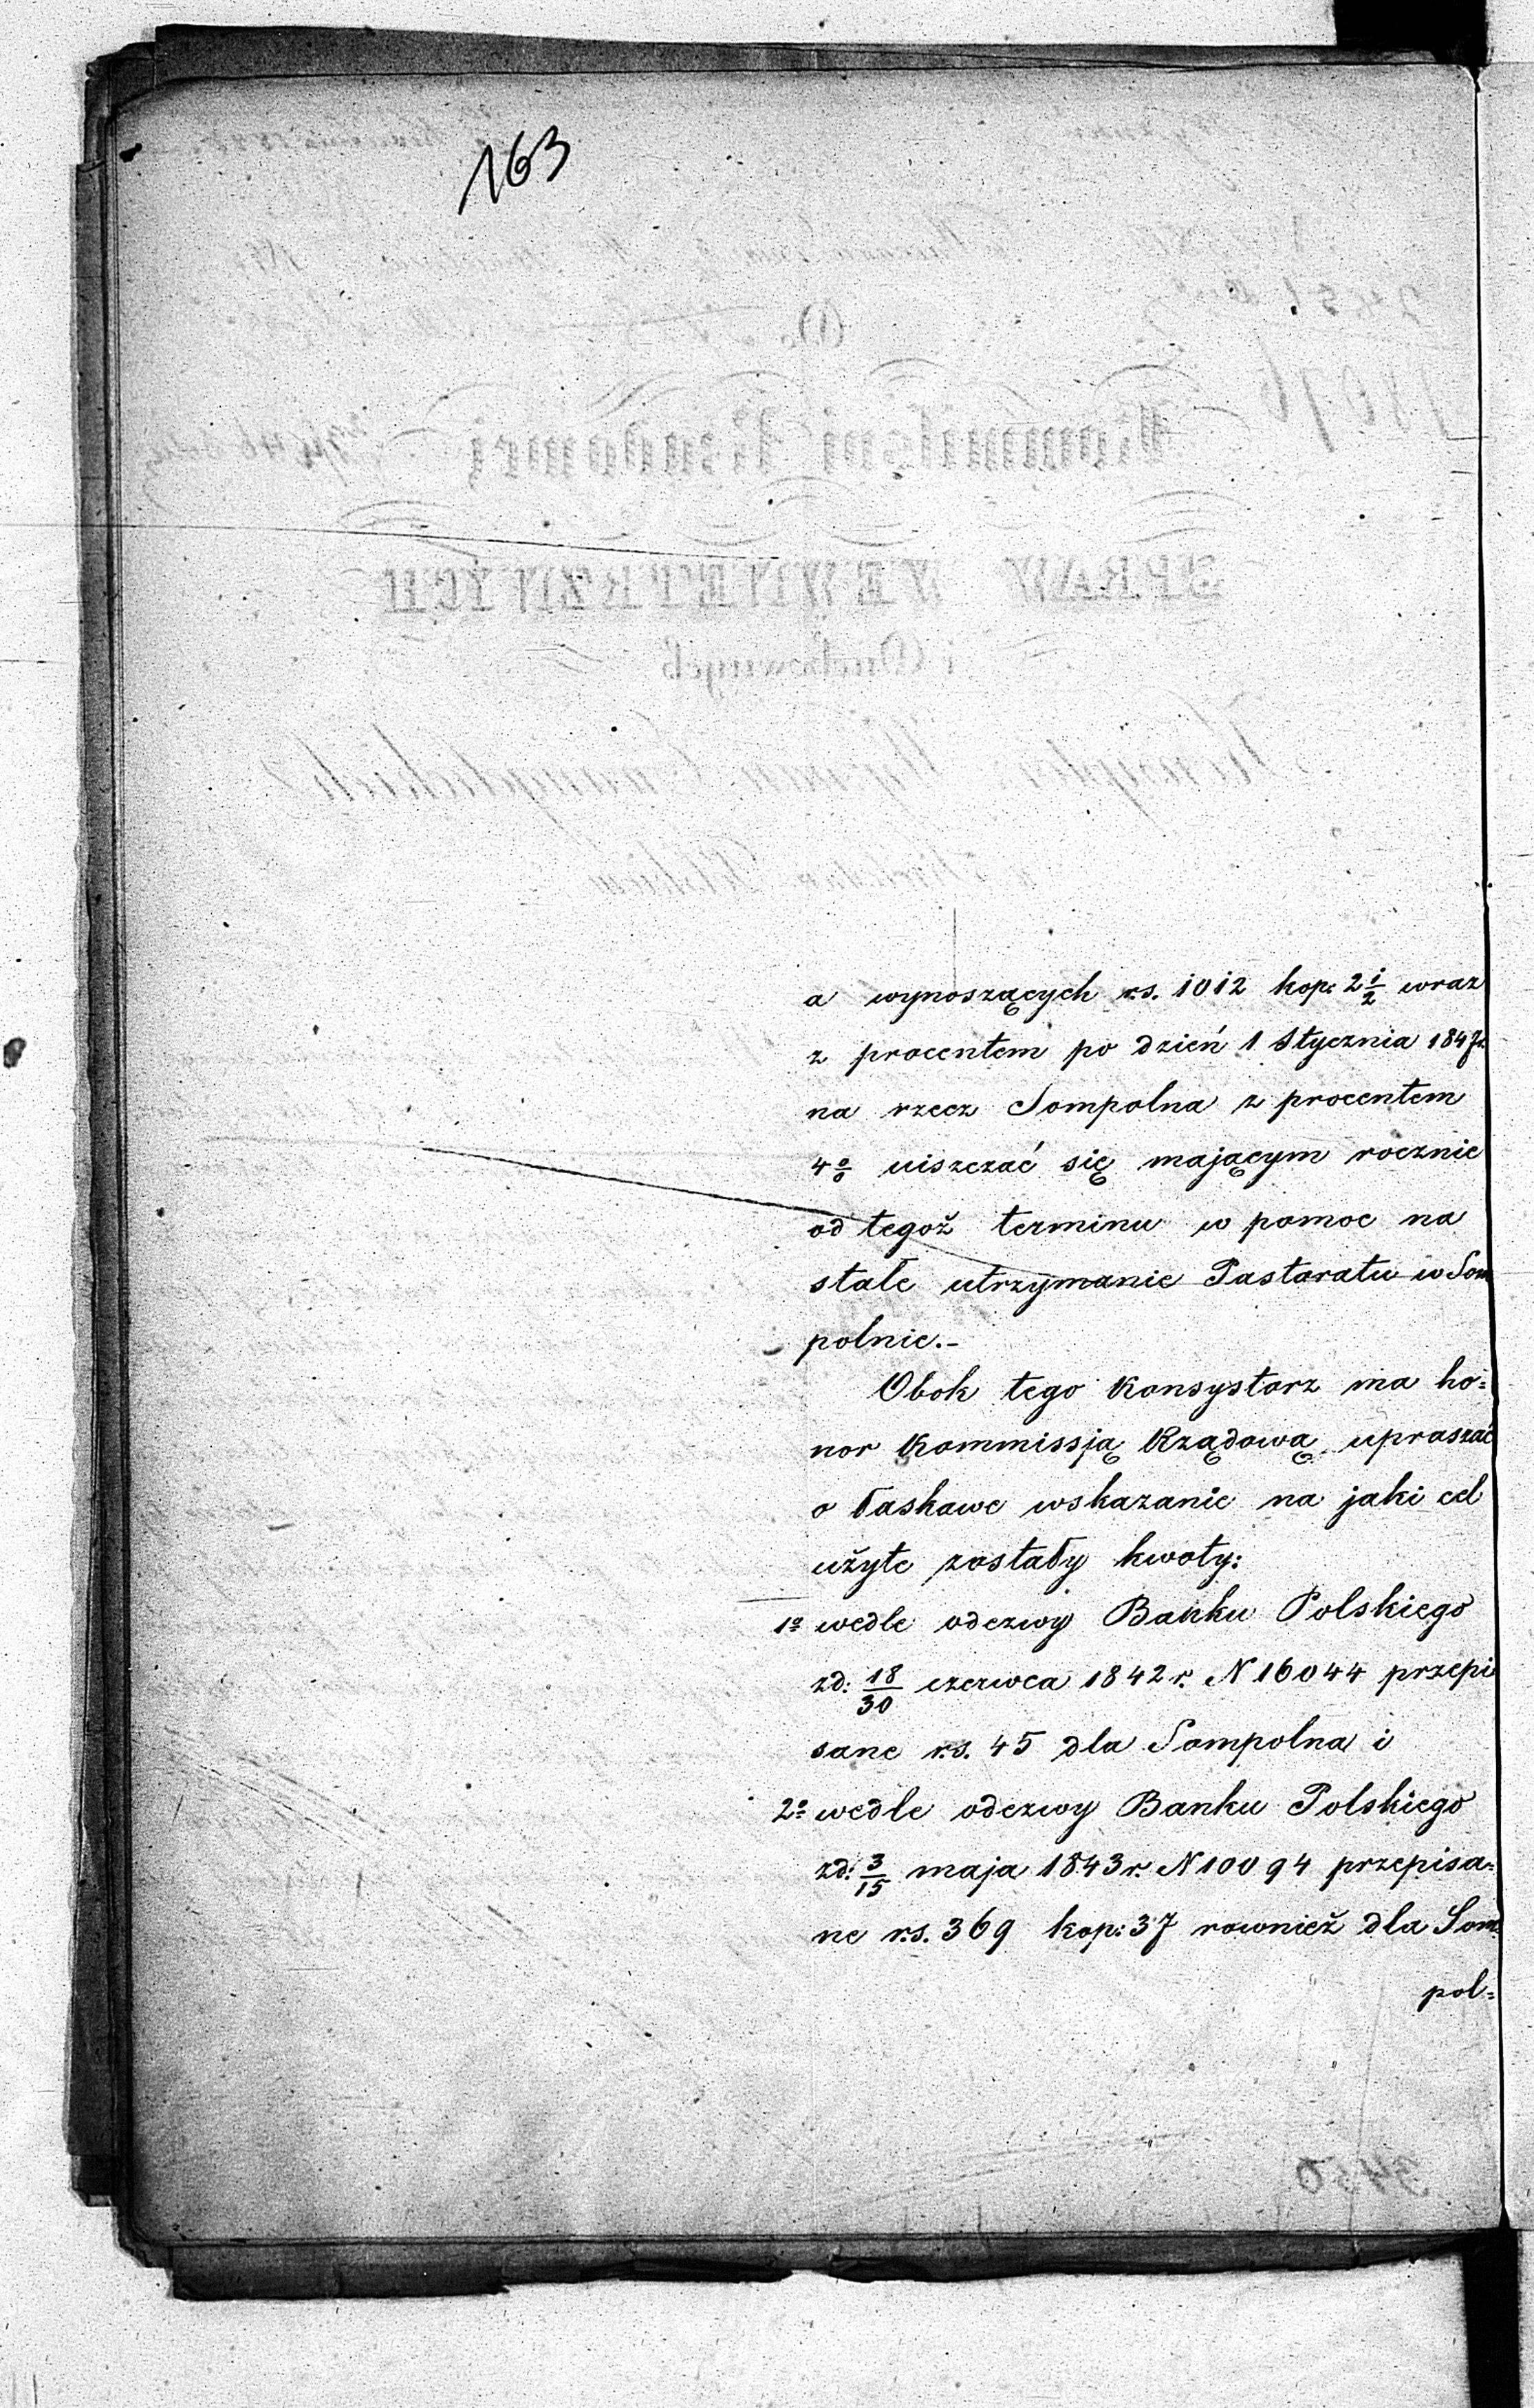 163
a wynoszących rs. 1012 kop: 2 1/2 wraz
z procentem po dzień 1 Stycznia 1847 r.
na rzecz Sompolna z procentem
4% uiszczać się mającym rocznie
od tegoż terminu w pomoc na
stałe utrzymanie Pastoratu w Som
polnie.-
Obok tego Konsystorz ma ho=
nor Kommissją Rządową upraszać
o łaskawe wskazanie na jaki cel
użyte zostały kwoty:
1o wedle odezwy Banku Polskiego
zd: 18/30 czerwca 1842 r. N 16044 przepi
sane rs. 45 dla Sompolna i
2o wedle odezwy Banku Polskiego
zd: 3/15 maja 1843 r. N 10094 przepisa=
ne rs. 369 kop: 37 rownież dla Som
pol=